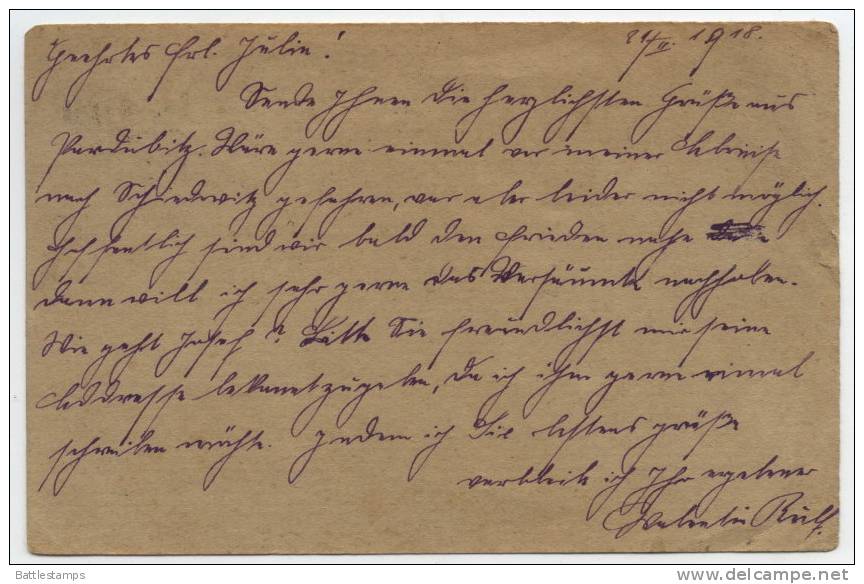 Geehrtes Frl. Julie! 24/II. 1918.
Sende Ihnen die herzlichsten Grüße aus
Pardubitz. Wäre gerne einmal vor meiner Abreise
nach Schiedowitz gefahren, war aber leider nicht möglich.
Hoffentlich sind wir bald den Frieden nahe
dann will ich sehr gerne das Versäumte nachholen.
Wie geht Josef? Bitte Sie freundlichst mir seine
Addresse bekanntzugeben, da ich ihm gerne einmal
schreiben möchte. Indem ich Sie bestens grüße
verbleibe ich Ihr ergebener
Valentin
Battlestamps
delcampe.net